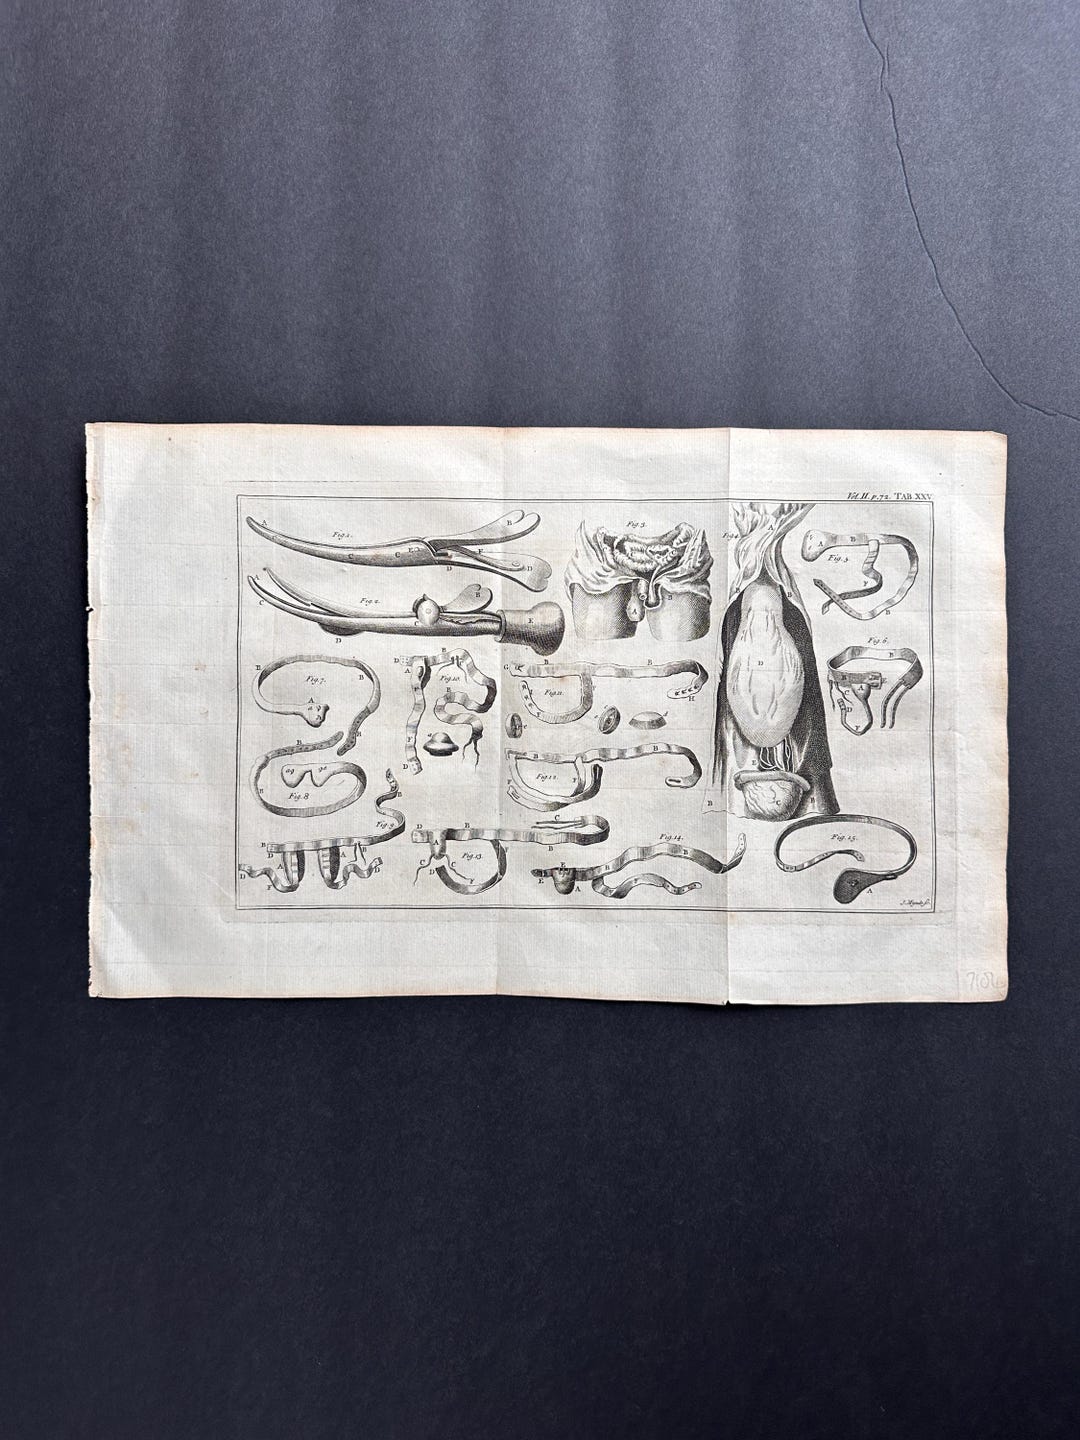 Vol. II. p. 72. TAB. XXV
Fig. 1.
A
B
C
C
E
F
D
D
Fig. 2.
C
B
C
E
D
Fig. 3.
A
Fig. 4.
A
B
D
E
C
B
Fig. 5.
A
B
F
B
Fig. 6.
B
B
A
C
Fig. 7.
B
B
A
B
Fig. 8
B
B
Fig. 9.
B
B
B
D
A
A
D
D
F
Fig. 10.
D
B
A
B
F
D
Fig. 11.
G
B
B
H
c
d
Fig. 12.
B
B
F
Fig. 13.
D
B
B
C
A
C
C
D
F
Fig. 14.
B
B
E
E
A
B
Fig. 15.
A
J. Mynde sc.